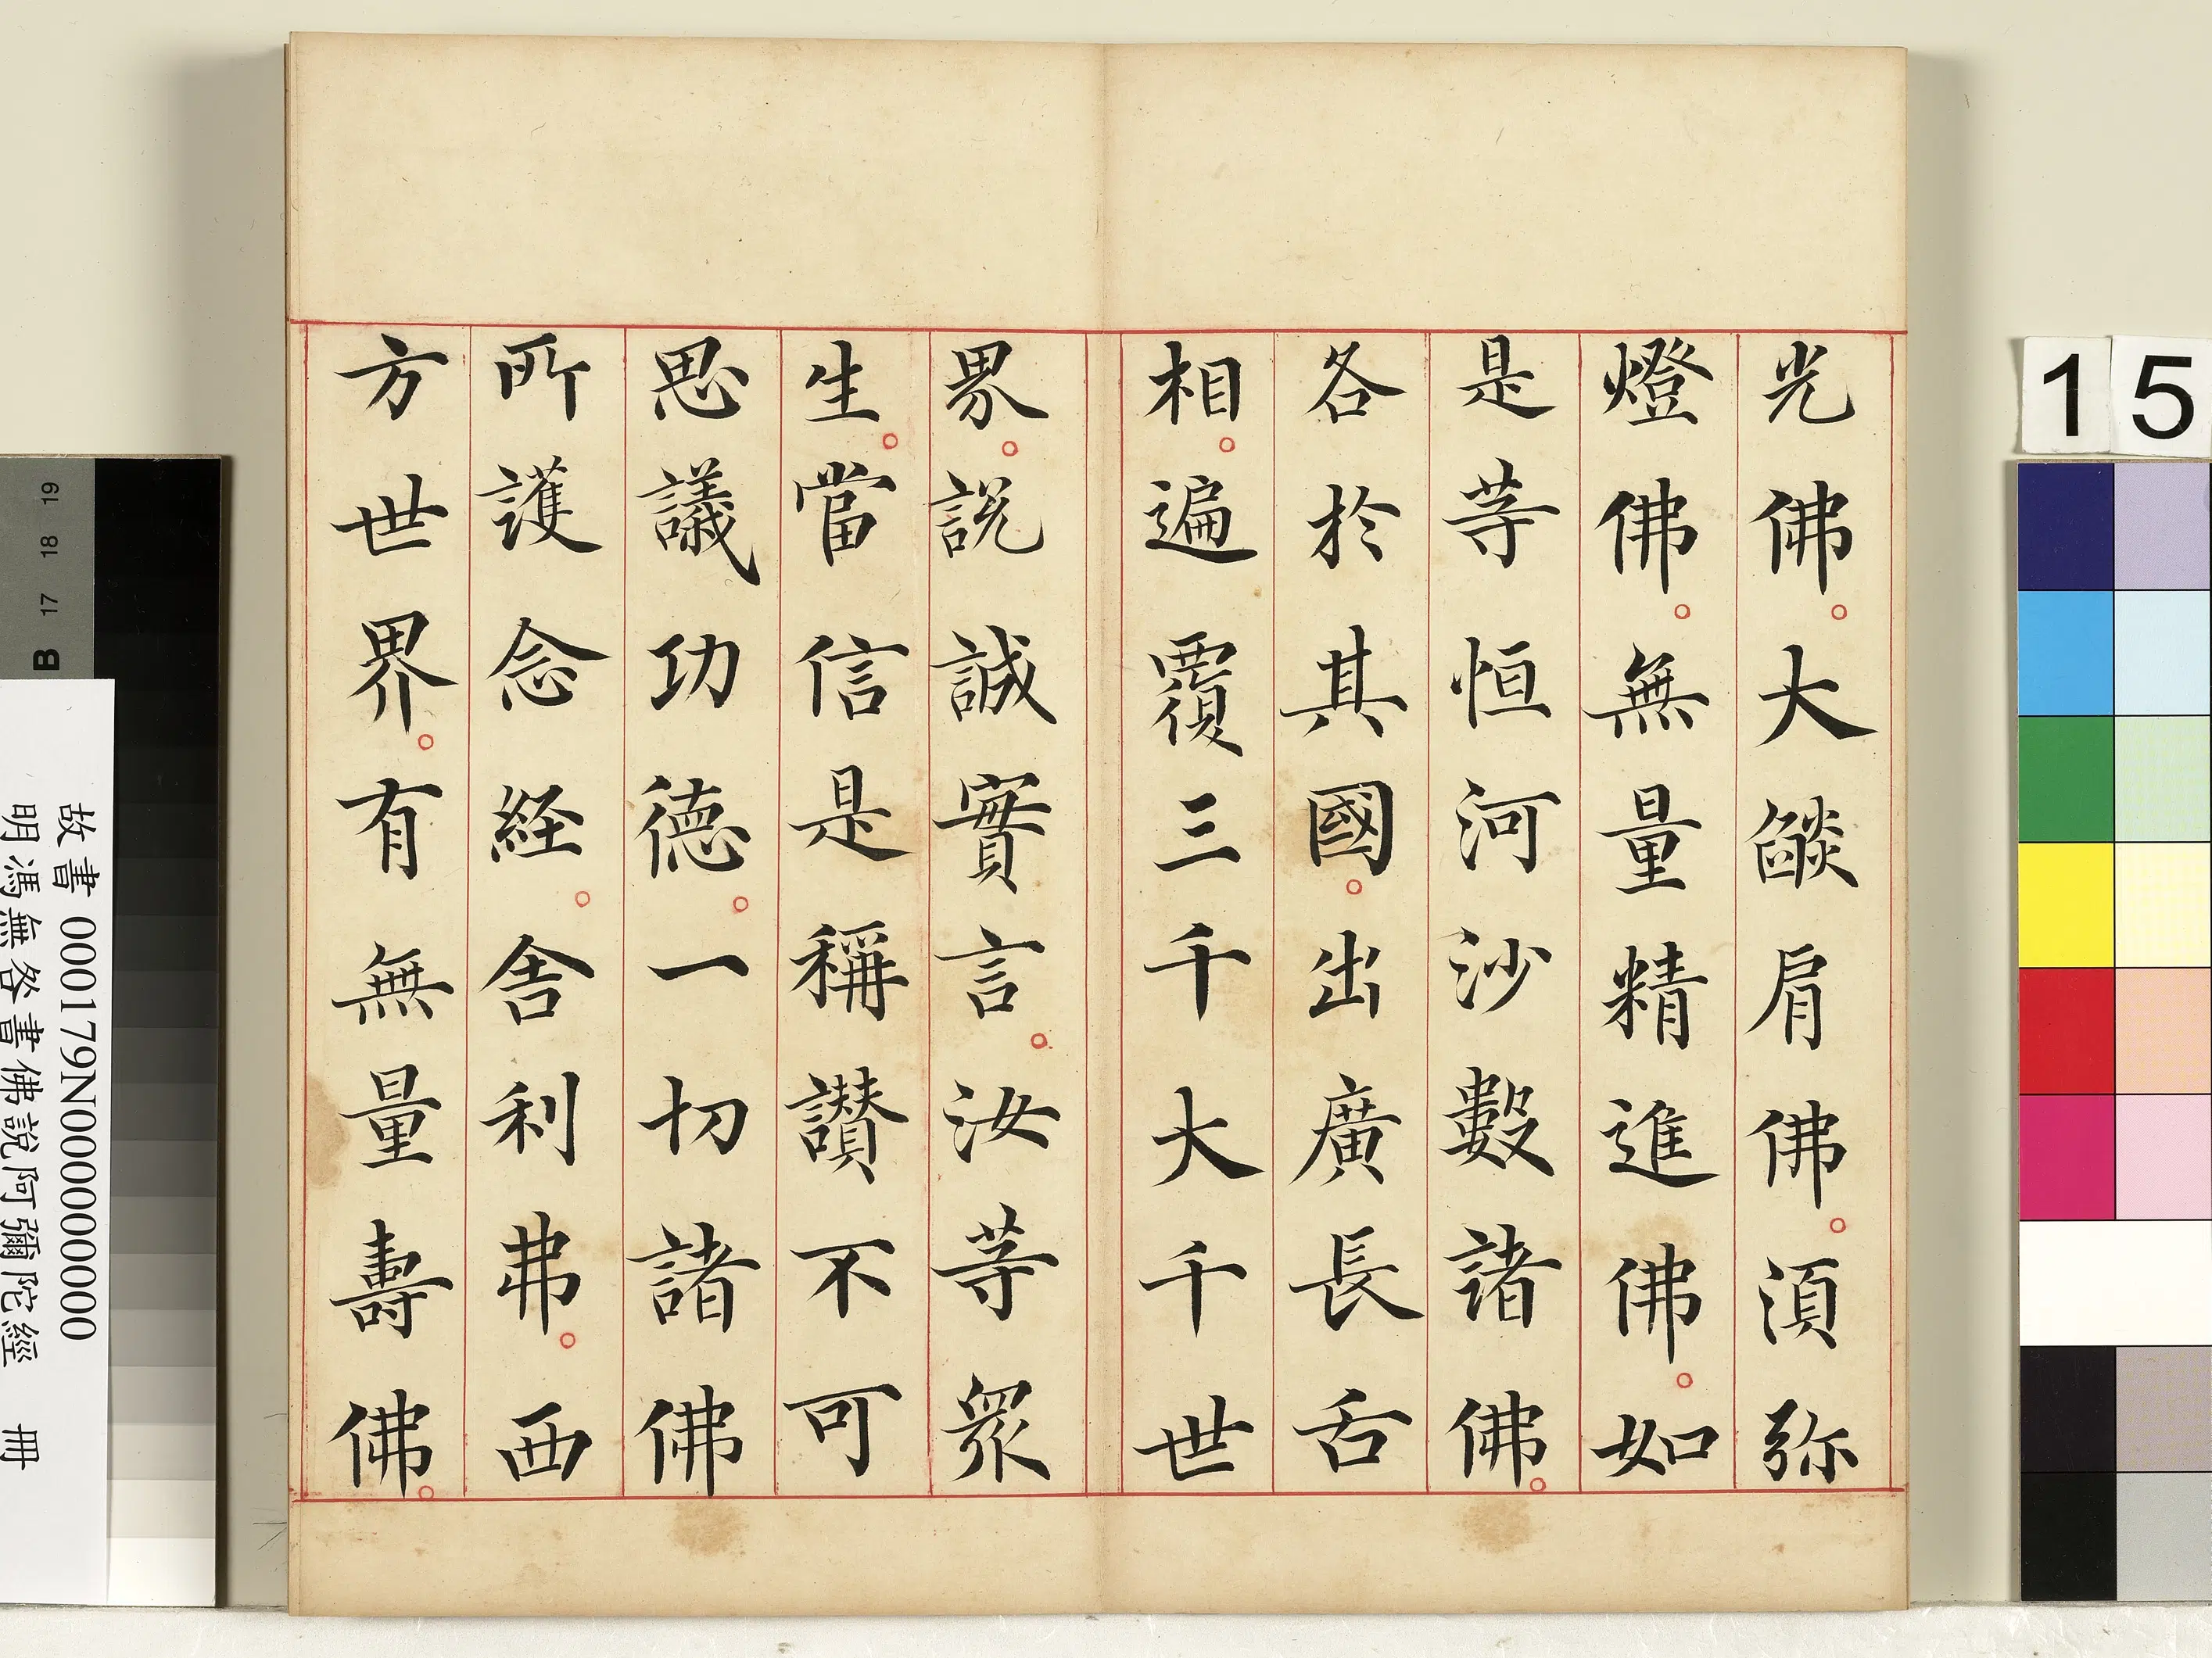 光佛。大燄肩佛。湏弥
燈佛。無量精進佛。如
是等恒河沙數諸佛。
各於其國。出廣長舌
相。遍覆三千大千世
界。説誠實言。汝等衆
生。當信是稱讃不可
思議功德。一切諸佛
所護念経。舍利弗。西
方世界。有無量壽佛。
15
19
18
17
B
故書 000179N000000000
明馮無咎書佛說阿彌陀經 冊